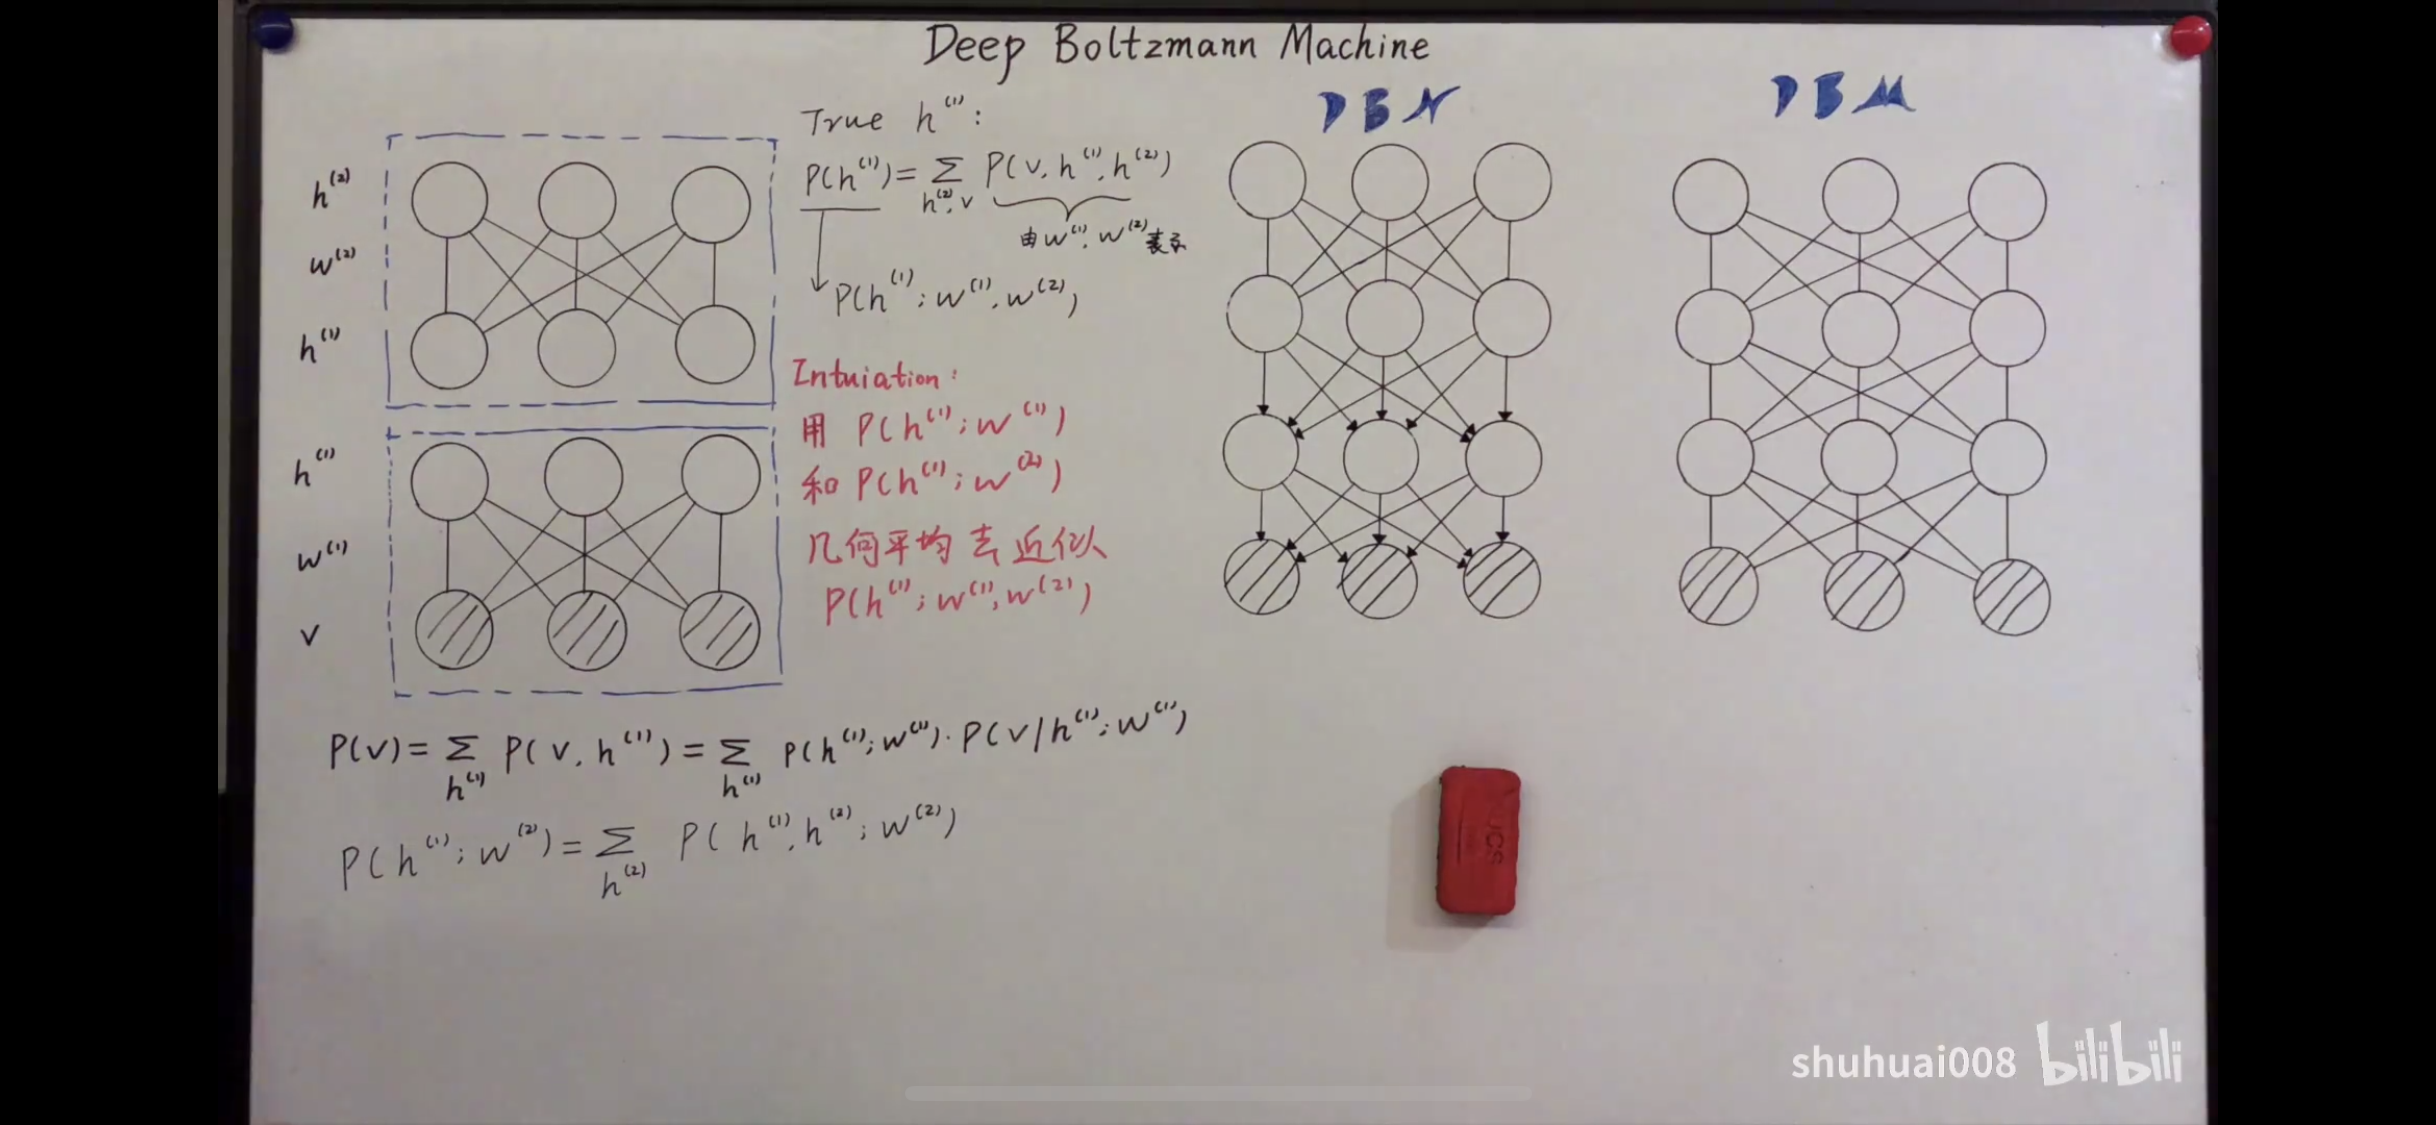 Deep Boltzmann Machine
h⁽²⁾
w⁽²⁾
h⁽¹⁾
h⁽¹⁾
w⁽¹⁾
v
True h⁽¹⁾:
P(h⁽¹⁾) = Σ_{h⁽²⁾,v} P(v, h⁽¹⁾, h⁽²⁾)
由w⁽¹⁾, w⁽²⁾表示
P(h⁽¹⁾; w⁽¹⁾, w⁽²⁾)
Intuiation:
用 P(h⁽¹⁾; w⁽¹⁾)
和 P(h⁽¹⁾; w⁽²⁾)
几何平均去近似
P(h⁽¹⁾; w⁽¹⁾, w⁽²⁾)
DBN
DBM
P(v) = Σ_{h⁽¹⁾} P(v, h⁽¹⁾) = Σ_{h⁽¹⁾} P(h⁽¹⁾; w⁽¹⁾)·P(v/h⁽¹⁾; w⁽¹⁾)
P(h⁽¹⁾; w⁽²⁾) = Σ_{h⁽²⁾} P(h⁽¹⁾, h⁽²⁾; w⁽²⁾)
shuhuai008 bilibili